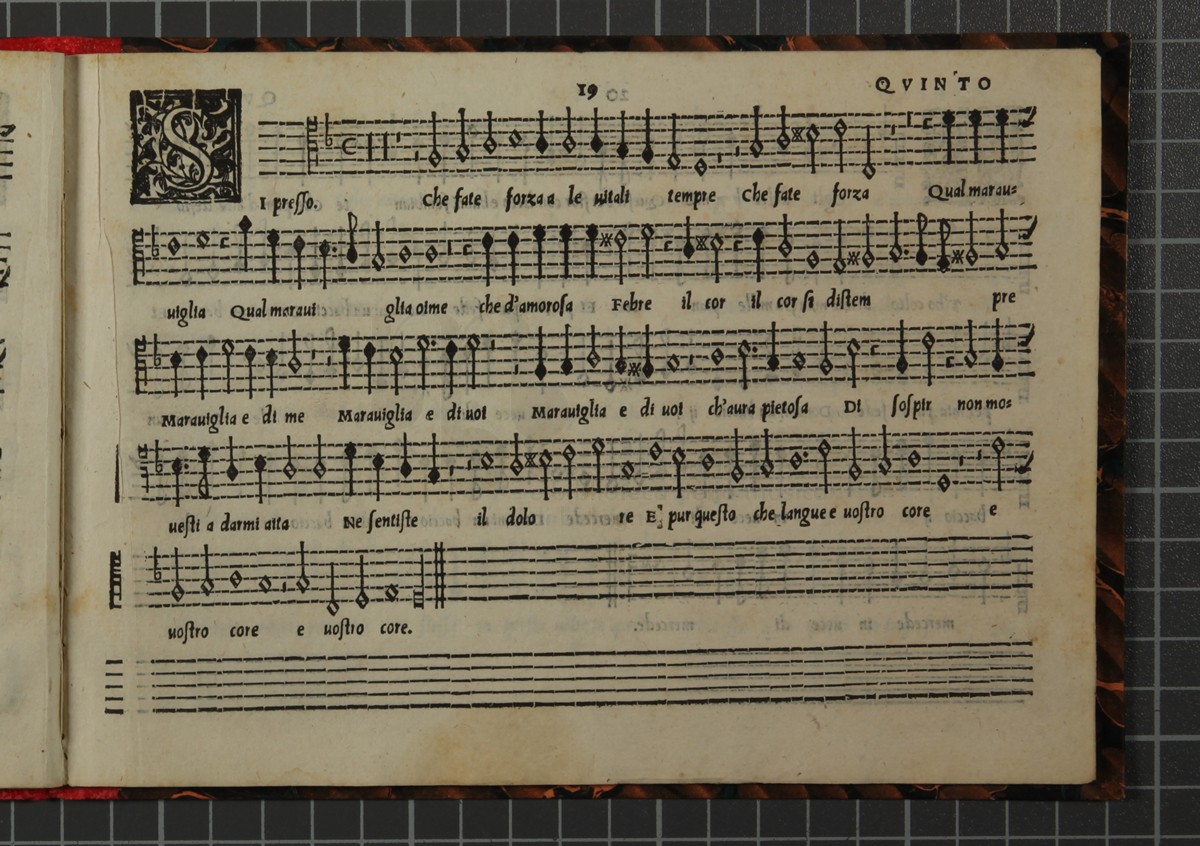 19 QVINTO
SI presso. Che fate forza a le uitali tempre Che fate forza Qual marau=
uiglia Qual maraui glia oime che d'amorosa Febre il cor il cor si distem pre
Marauiglia e di me Marauiglia e di uoi Marauiglia e di uoi ch'aura pietosa Di sospir non mo=
uesti a darmi aita Ne sentiste il dolo re E pur questo che langue e uostro core e
uostro core e uostro core.